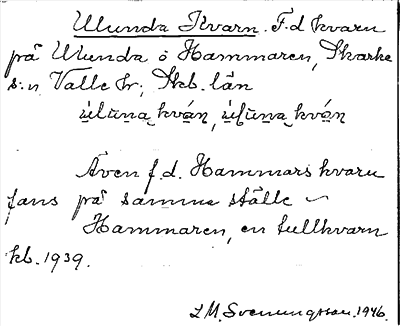 Ulunda Kvarn. F.d kvarn
på Ulunda ö Hammaren, Skarke
s:n, Valle hr, Skb. län
ùlúna kván, ùlúna kvón
Även f.d. Hammars kvarn
fans på samma ställe
Hammaren, en tullkvarn
kb. 1939.
L M. Svenungsson. 1946.